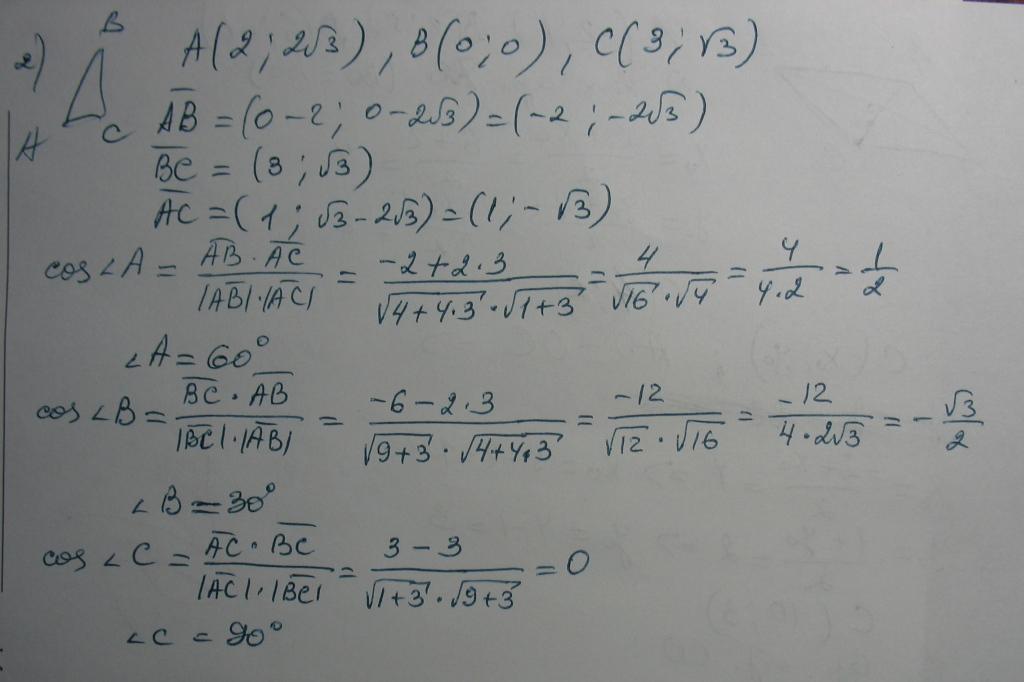 2) B A C A(2; 2√3), B(0; 0), C(3; √3)
AB = (0 - 2; 0 - 2√3) = (-2; -2√3)
BC = (3; √3)
AC = (1; √3 - 2√3) = (1; -√3)
cos∠A = AB · AC / |AB| · |AC| = -2 + 2·3 / √4+4·3 · √1+3 = 4 / √16 · √4 = 4 / 4·2 = 1/2
∠A = 60°
cos∠B = BC · AB / |BC| · |AB| = -6 - 2·3 / √9+3 · √4+4·3 = -12 / √12 · √16 = -12 / 4·2√3 = -√3/2
∠B = 30°
cos∠C = AC · BC / |AC| · |BC| = 3 - 3 / √1+3 · √9+3 = 0
∠C = 90°